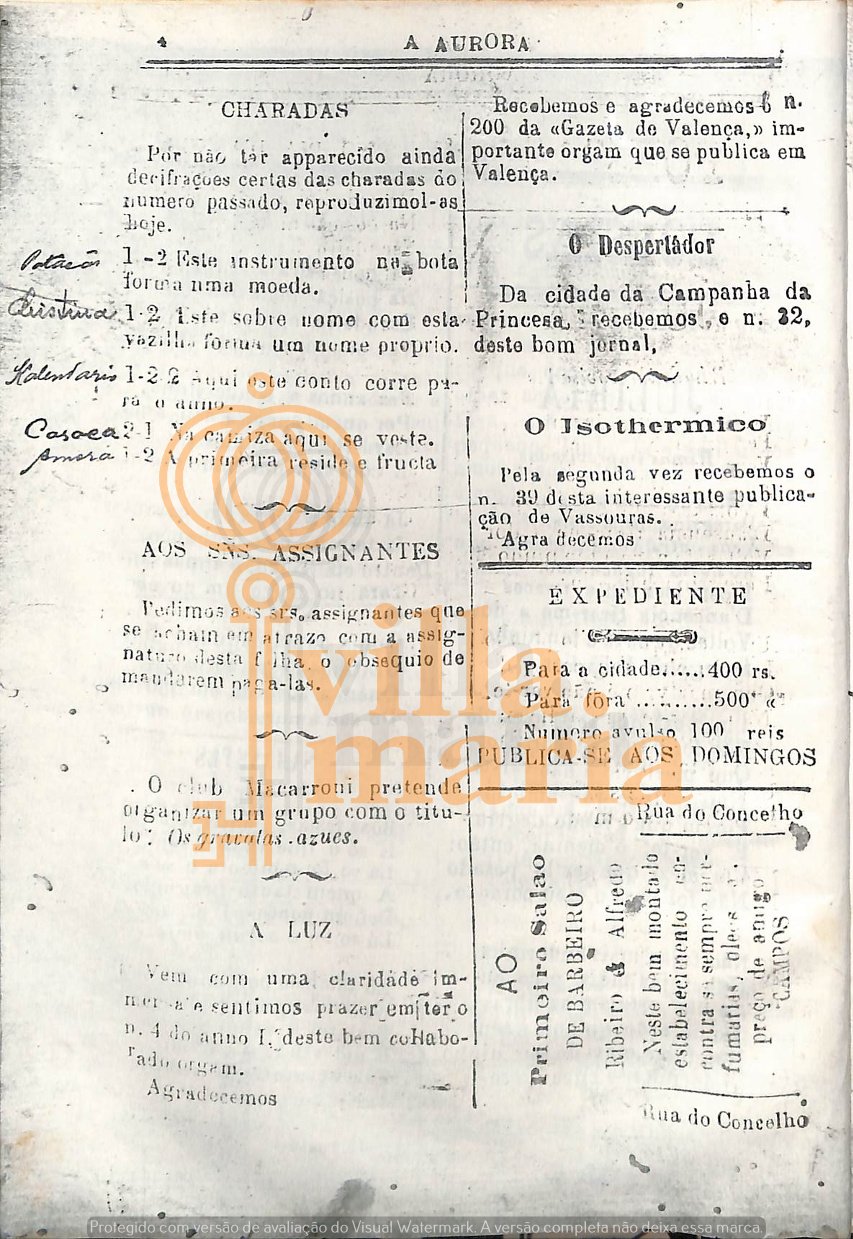 4
A AURORA
CHARADAS
Por não ter apparecido ainda
decifrações certas das charadas do
numero passado, reproduzimol-as
hoje.
Patacão 1-2 Este instrumento na bota
forma uma moeda.
Christina 1-2 Este sobre nome com esta
vazilha forma um nome proprio.
Kalendario 1-2 2 Aqui este conto corre pa-
ra o anno.
Casaca 2-1 Na camiza aqui se veste.
Amora 1-2 A primeira reside e fructa
AOS SNS. ASSIGNANTES
Pedimos aos srs. assignantes que
se acham em atrazo com a assig-
natura desta folha, o obsequio de
mandarem paga-las.
O club Macarroni pretende
organizar um grupo com o titu-
lo: Os gravatas azues.
A LUZ
Vem com uma claridade im-
mensa e sentimos prazer em ter o
n. 4 do anno I, deste bem collabo-
rado orgam.
Agradecemos
Recebemos e agradecemos o n.
200 da «Gazeta de Valença,» im-
portante orgam que se publica em
Valença.
O Despertádor
Da cidade da Campanha da
Princesa, recebemos, o n. 32,
deste bom jornal,
O Isothermico
Pela segunda vez recebemos o
n. 39 desta interessante publica-
ção de Vassouras.
Agradecemos
EXPEDIENTE
Para a cidade......400 rs.
Para fóra ..........500 «
Numero avulso 100 reis
PUBLICA-SE AOS DOMINGOS
Rua do Concelho
AO
Primeiro Salao
DE BARBEIRO
Ribeiro & Alfredo
Neste bem montado
estabelecimento en-
contra se sempre per-
fumarias, oleos
preço de amigo
CAMPOS
Rua do Concelho
villa
maria
Protegido com versão de avaliação do Visual Watermark. A versão completa não deixa essa marca.